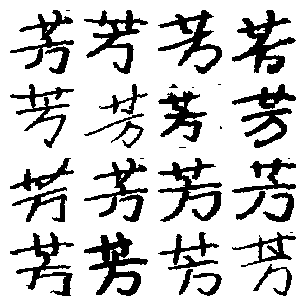 芳芳芳芳
芳芳芳芳
芳芳芳芳
芳芳芳芳